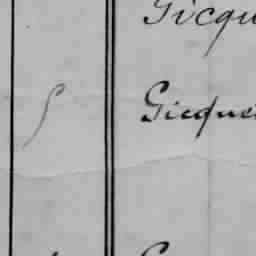 Gicqu
Gicque